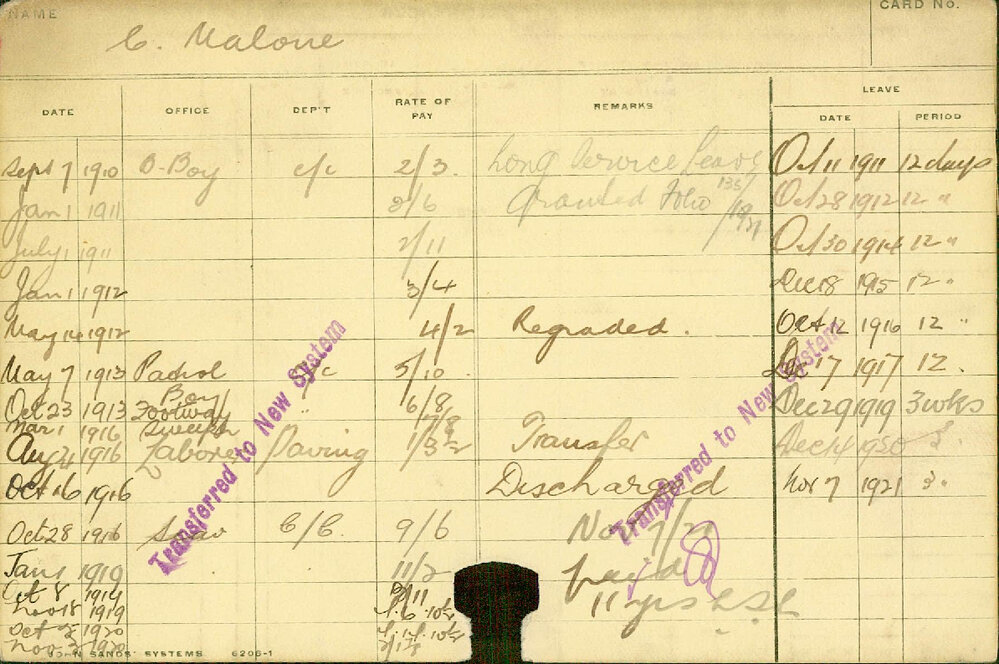 NAME
CARD No.
C. Malone
DATE OFFICE DEP'T RATE OF PAY REMARKS LEAVE
DATE PERIOD
Sept 7 1910 O-Boy c/c 2/3. Long Service Leave Oct 11 1911 12 days
Jan 1 1911 2/6 Granted Folio 135/1921 Oct 28 1912 12 "
July 1 1911 2/11 Oct 30 1914 12 "
Jan 1 1912 3/4 Dec 18 1915 12 "
May 14 1912 4/2 Regraded. Oct 12 1916 12 "
May 7 1913 Patrol Boy c/c 5/10. 17 1917 12.
Oct 23 1913 Footway " 6/8 Dec 29 1919 3 wks
Mar 1 1916 Sweeper 7/8
Aug 21 1916 Laborer Paving Transfer Dec 14 1920 3.
Oct 16 1916 Discharged Nov 7 1921 3.
Oct 28 1916 C/C. 9/6 Nov 7/21
Jan 1 1919 11/2 paid
Oct 8 1919 11 yrs L.S.L
Nov 18 1919
Oct 1920
Nov 1920
Transferred to New System
Transferred to New System
JOHN SANDS' SYSTEMS 6206-1